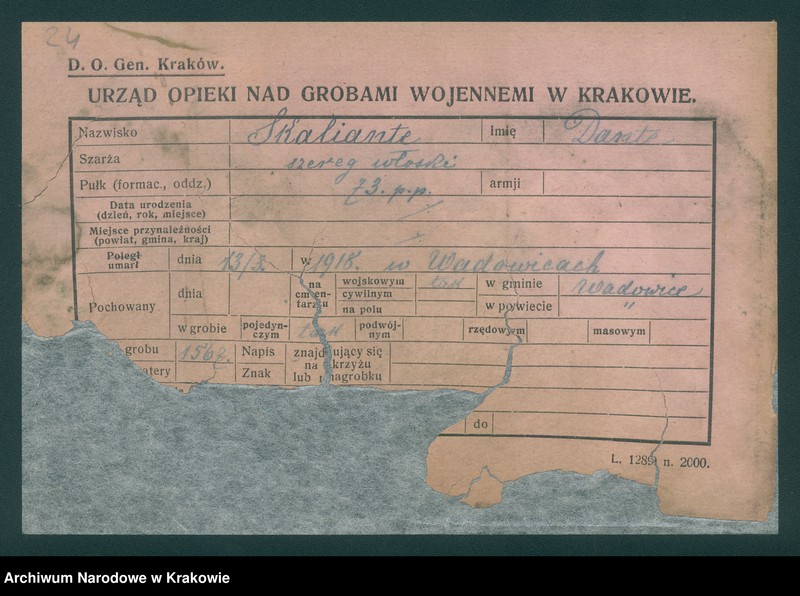 24
D. O. Gen. Kraków.
URZĄD OPIEKI NAD GROBAMI WOJENNEMI W KRAKOWIE.
Nazwisko Skaliante Imię Dante
Szarża szereg włoski
Pułk (formac., oddz.) 73. p.p. armji
Data urodzenia (dzień, rok, miejsce)
Miejsce przynależności (powiat, gmina, kraj)
Poległ umarł dnia 13/3. w 1918. w Wadowicach
Pochowany dnia na cmentarzu wojskowym tak w gminie Wadowice
cywilnym
na polu w powiecie "
w grobie pojedynczym tak podwójnym rzędowym masowym
grobu 156 Napis znajdujący się na krzyżu lub nagrobku
atery Znak
do
L. 1289 n. 2000.
Archiwum Narodowe w Krakowie